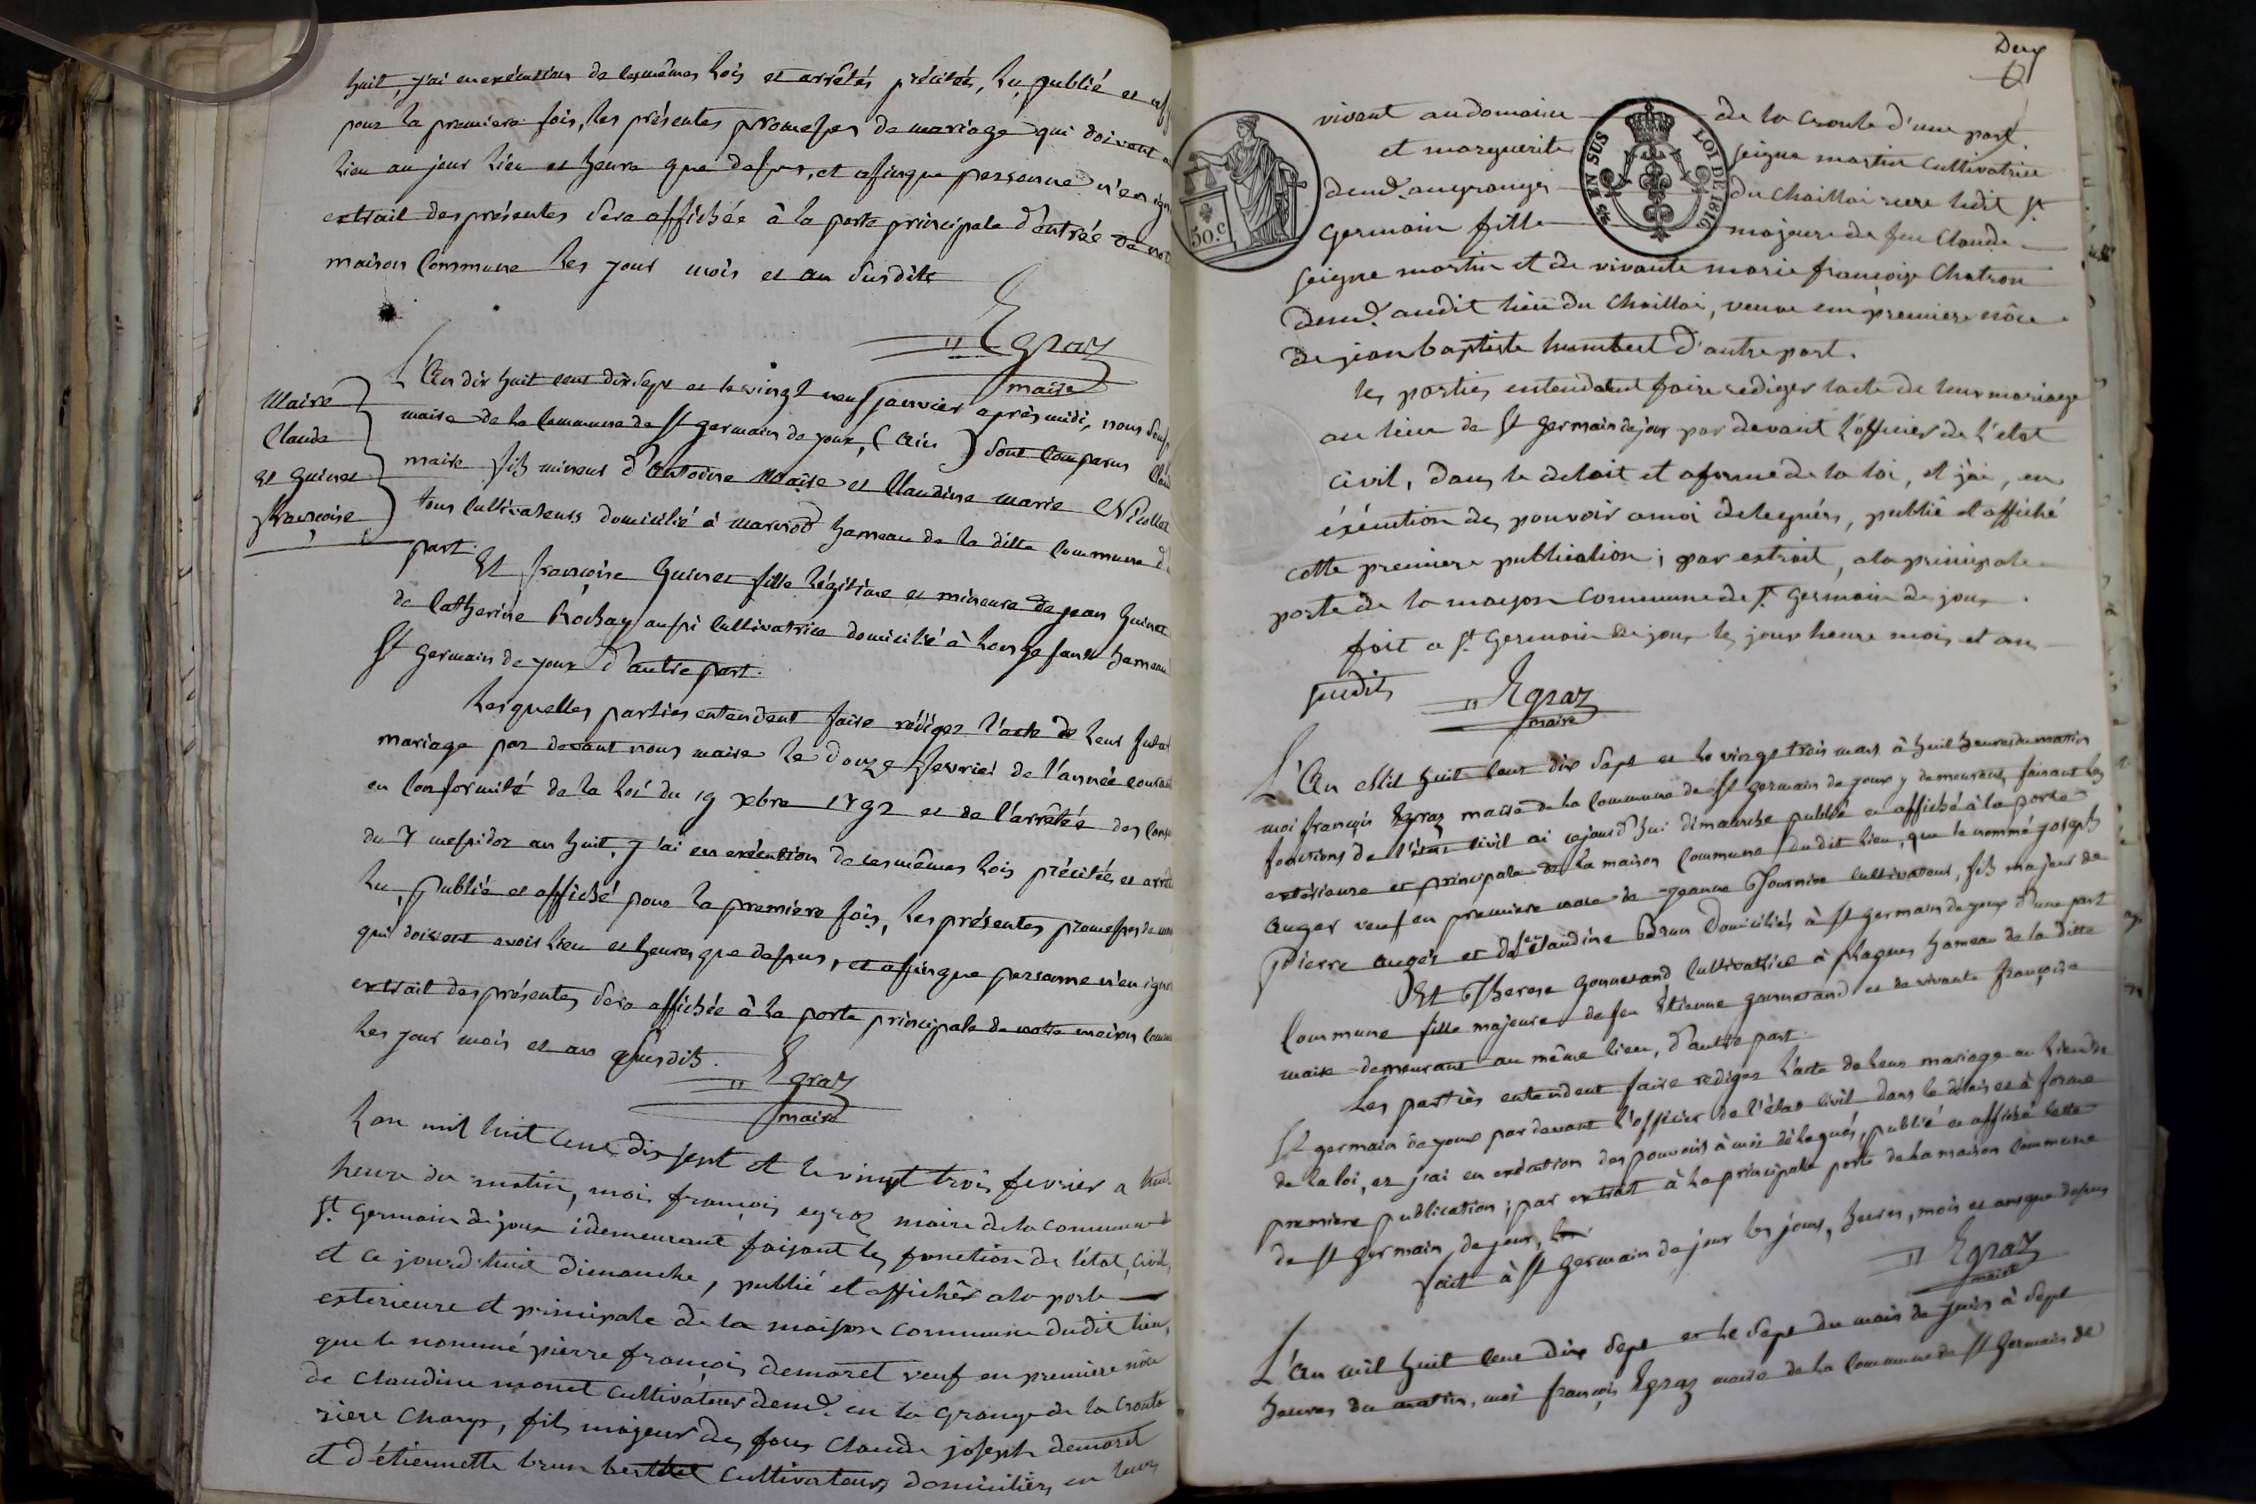 huit, j'ai en exécution de ces mêmes lois et arrêtés précités, lu, publié et
pour la premiere fois, les présentes promesses de mariage qui doivent
lieu au jour lieu et heure que dessus, et afinque personne n'en
extrait des présentes sera affichée à la porte principale d'entrée de
maison Commune les jour mois et an susdits
Egraz
maire
Maire
Claude
et Guinet
françoise
L'An dix huit cent dix sept et le vingt neuf janvier après midi, nous
maire de la Commune de St germain de joux, (Ain) sont Comparus
maire fils mineur d'Antoine Maire et Claudine marie Nicollet
tous Cultivateurs domicilié à marnod hameau de la ditte Commune d'
part.
Et françoise Guinet fille légitime et mineure de jean Guinet
de Catherine Rochay aussi Cultivatrice domicilié à longefand hameau
St germain de joux d'autre part.
Lesquelles parties entendent faire rédiger l'acte de leur futur
mariage par devant nous maire le douze fevrier de l'année courante
en Conformité de la loi du 19 xbre 1792 et de l'arrêtée des
du 7 messidor an huit, j'ai en exécution de ces mêmes lois précités et
lu, publié et affiché pour la premiere fois, les présentes promesses de
qui doivent avoir lieu et heures que dessus, et afinque personne n'en
extrait des présentes sera affichée à la porte principale de notre maison
les jour mois et an susdits.
Egraz
maire
L'an mil huit cent dix sept et le vingt trois fevrier a huit
heure du matin, moi françois egraz maire de la commune de
St. germain de joux i demeurant faisant les fonction de l'état civil,
et ce jourd'huit dimanche, publié et affichêr a la porte
exterieure et principale de la maison commune dudit lieu,
que le nommé pierre françois demaret veuf en premiere nôce
de claudine monet cultivateur demt. en la grange de la croute
riere charix, fils majeur des feus claude joseph demaret
et d'étiennette brun cultivateurs domiciliés en leur
Deux
vivant au domaine de la croute d'une part.
et marguerite seigne martin cultivatrice
demt. au granges du chaillai riere ledit St
germain fille majeure de feu claude
seigne martin et de vivante marie françoise Chatron
demt. audit lieu du chaillai, veuve en premiere nôce
de jean baptiste humbert d'autre part.
les parties entendent faire rediger lacte de leur mariage
au lieu de St germain de joux par devant l'officier de l'etat
civil, dans le delait et a forme de la loi, et j'ai, en
éxécution des pouvoir a moi delegués, publié et affiché
cette premiere publication; par extrait, a la principale
porte de la maison commune de St. germain de joux.
fait a St. germain de joux les jour heure mois et an
susdits
Egraz
maire
L'An Mil huit Cent dix sept et le vingt trois mars à huit heures du matin
moi françois Egraz maire de la Commune de St germain de joux y demeurant, faisant les
fonctions de l'état Civil ai cejourd'hui dimanche publié et affiché à la porte
extérieure et principale de la maison Commune dudit lieu, que le nommé joseph
Auger veuf en premiere noce de jeanne fournier Cultivateur, fils majeur de
Pierre Auger et de feu Claudine Brun domiciliés à St germain de joux d'une part
Et Therese Gonnerand Cultivatrice à plagnes hameau de la ditte
Commune fille majeure de feu Etienne gonnerand et de vivante françoise
maire demeurant au même lieu, d'autre part
Les parties entendent faire rediger l'acte de leur mariage au lieu de
St germain de joux par devant l'officier de l'état Civil dans le délais et à forme
de la loi, et j'ai en exécution des pouvoirs à moi délegués, publié et affiché cette
premiere publication; par extrait à la principale porte de la maison Commune
de St germain de joux,
fait à St germain de joux les jour, heures, mois et an que dessus
Egraz
maire
L'An mil huit Cent dix sept et le sept du mois de juin à sept
heures du matin, moi françois Egraz maire de la Commune de St germain de
50.c
EN SUS
LOI DE 1816